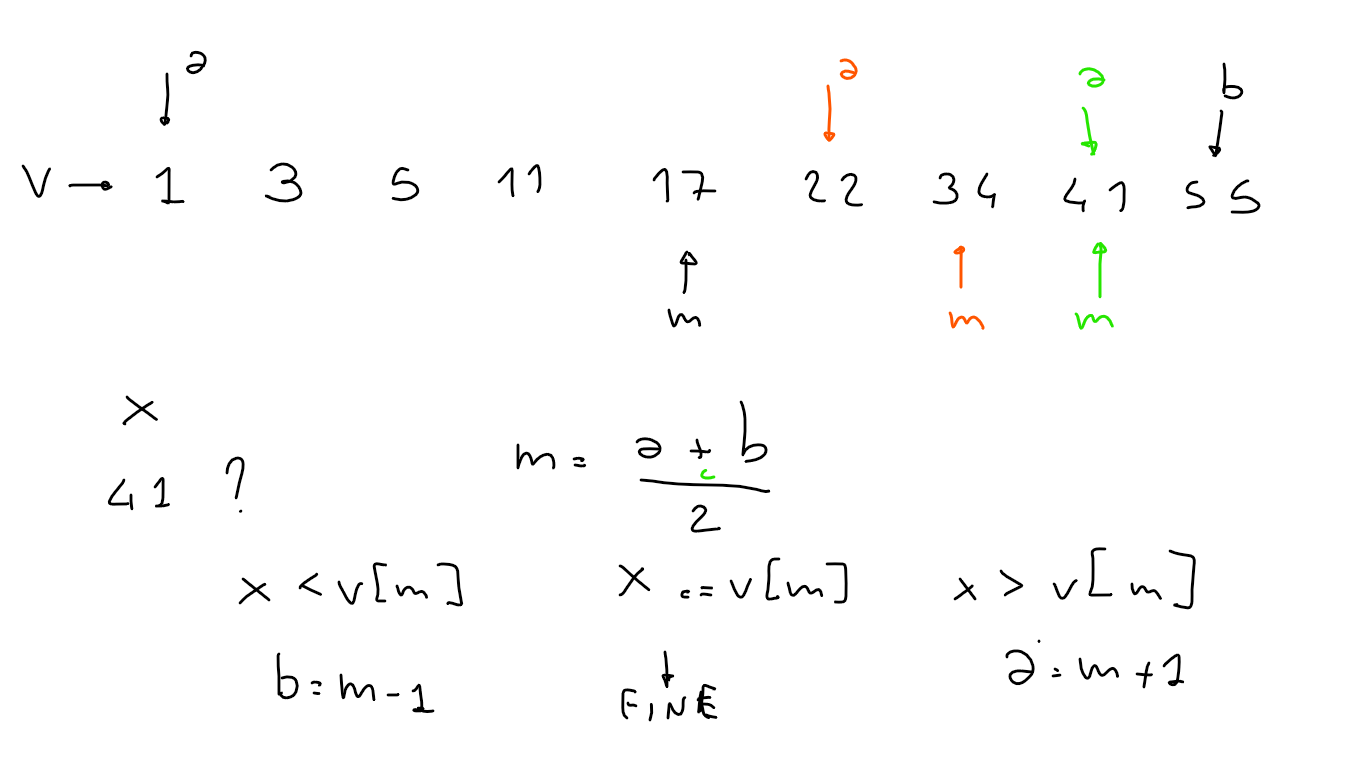 a a a b
V → 1 3 5 11 17 22 34 41 55
m m m
x
41 ?
m = a + b
2
x < v[m] x == v[m] x > v[m]
b = m - 1 FINE a = m + 1